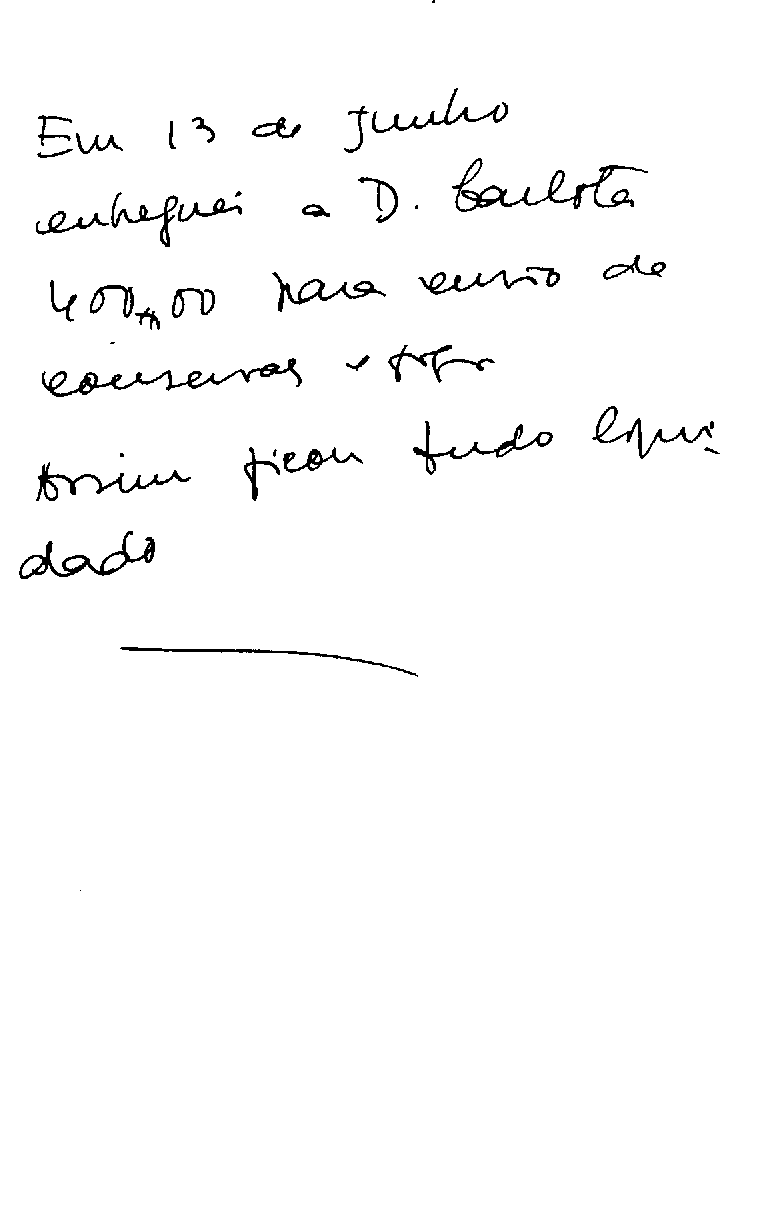 Em 13 de Junho
entreguei a D. Carlota
400$00 para envio de
conservas e
Assim ficou tudo liqui-
dado